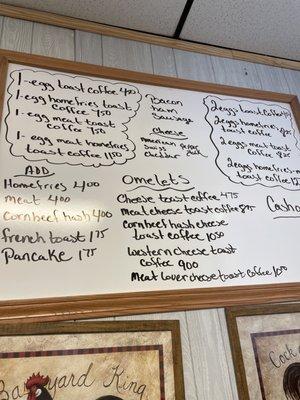 1-egg toast coffee 400
1-egg homefries toast
coffee 750
1-egg meat toast
coffee 750
1-egg meat homefries
toast coffee 1150
Bacon
ham
Sausage
Cheese
American
Cheddar
2 eggs toast coffee
2 eggs homefries
toast coffee
2 eggs meat toast
coffee
2 eggs homefries
meat toast coffee
ADD
Homefries 400
meat 400
Corn beef hash 400
french toast 175
Pancake 175
Omelets
Cheese toast coffee 475
Meat cheese toast coffee
Corn beef hash cheese
toast coffee 1050
Western cheese toast
coffee 900
Meat lover cheese toast coffee 1000
Cash
Barnyard King
Cock